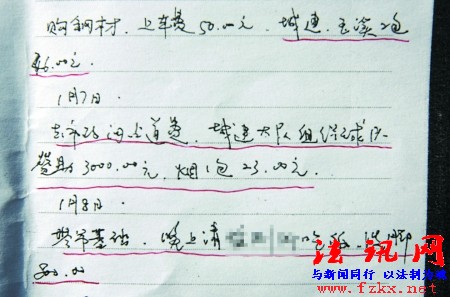 购钢材，上车费50.00元，城建，玉溪2包
46.00元.
1月7日.
去市政问道费，城建大队组织球队
赞助3000.00元，烟1包23.00元.
1月8日
基础，晚上请 吃饭、洗脚
800.00
法讯网
与新闻同行 以法制治
www.fzkx.net